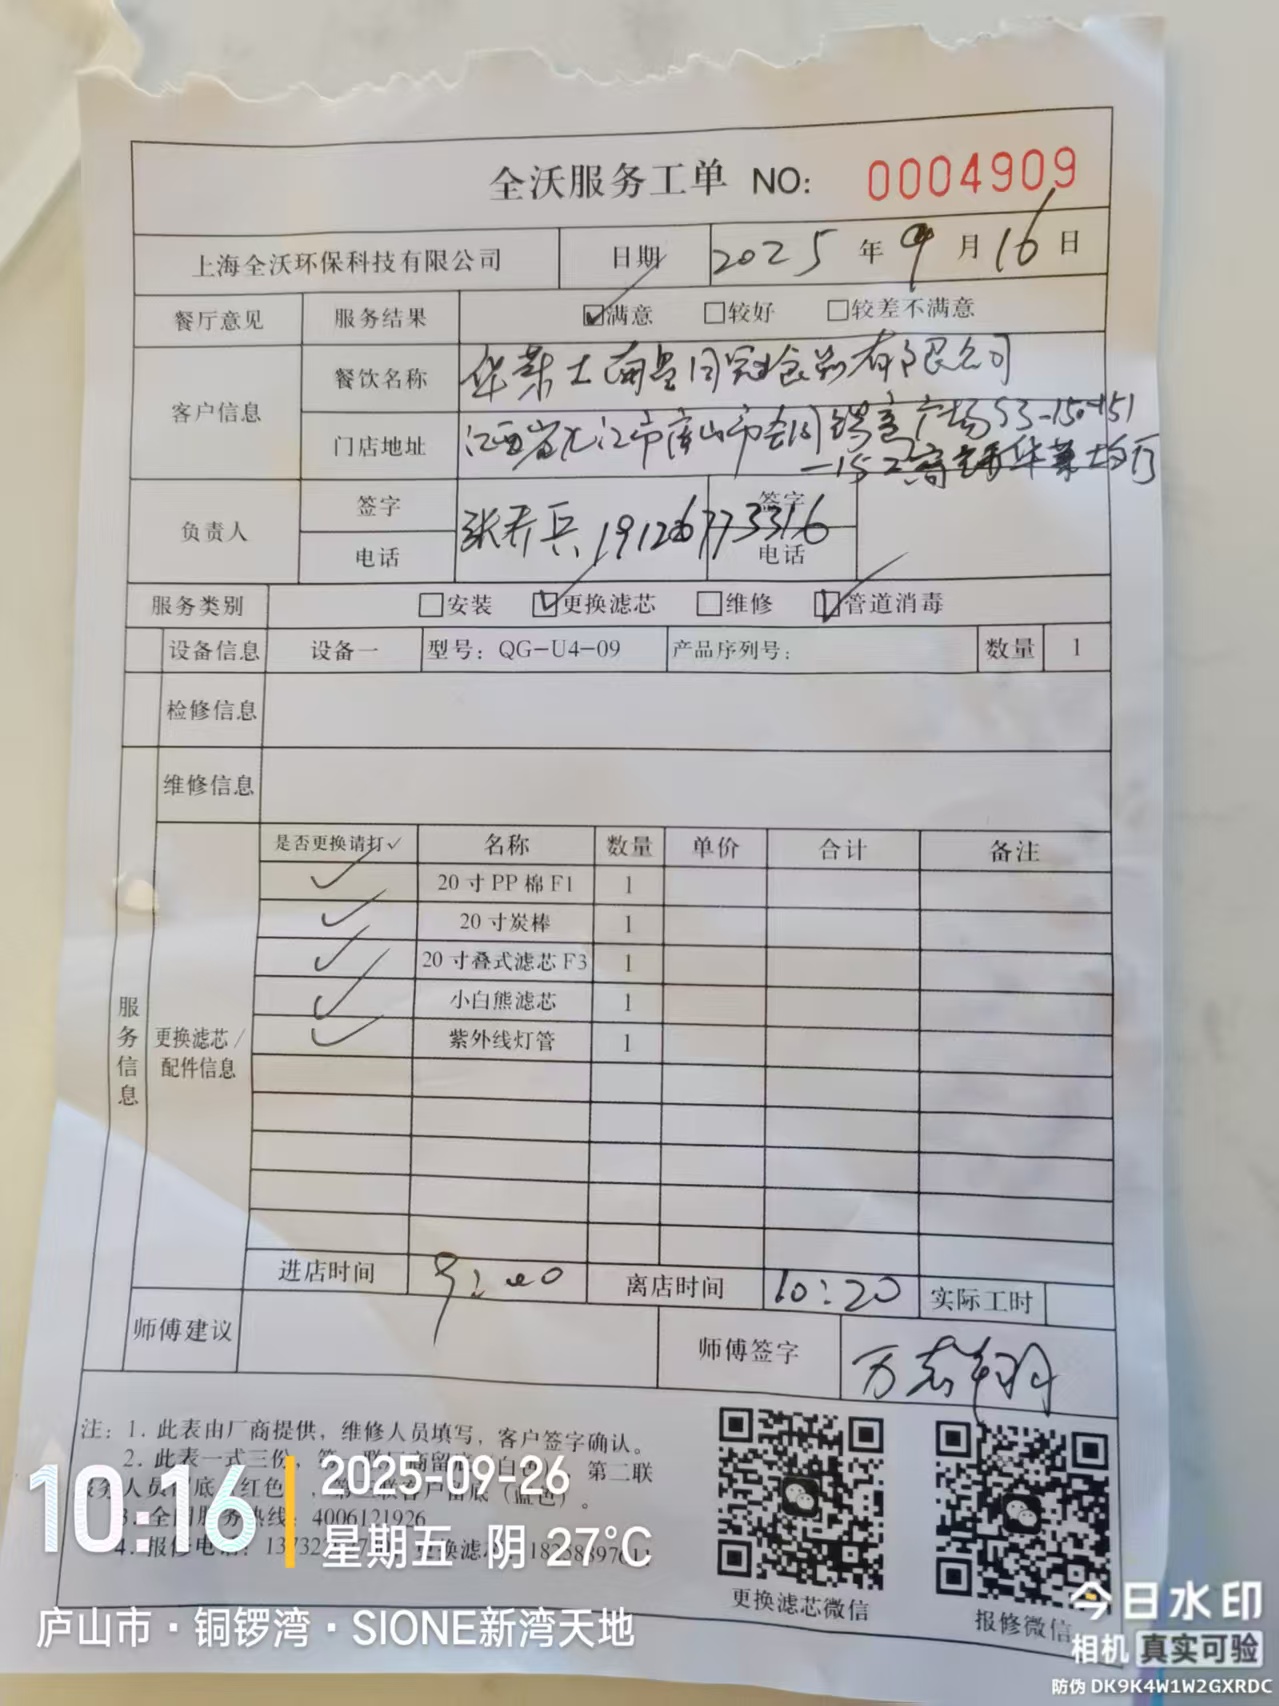 全沃服务工单 NO: 0004909
上海全沃环保科技有限公司 日期 2025 年 9 月 16 日
餐厅意见 服务结果 ☑满意 □较好 □较差不满意
客户信息 餐饮名称 华莱士 有限公司
门店地址 江西省九江市庐山市 广场S3-150-151
-152 华莱士
负责人 签字 张 兵 19126773316 签字
电话 电话
服务类别 □安装 ☑更换滤芯 □维修 ☑管道消毒
设备信息 设备一 型号: QG-U4-09 产品序列号: 数量 1
检修信息
维修信息
是否更换请打✓ 名称 数量 单价 合计 备注
✓ 20 寸 PP 棉 F1 1
✓ 20 寸炭棒 1
✓ 20 寸叠式滤芯 F3 1
✓ 小白熊滤芯 1
✓ 紫外线灯管 1
服务信息
更换滤芯/
配件信息
进店时间 9:00 离店时间 10:20 实际工时
师傅建议 师傅签字 万志翔
注: 1. 此表由厂商提供, 维修人员填写, 客户签字确认。
2. 此表一式三份, 第 联厂商留底 白色 , 第二联
服务人员 底 红色 , 第 联客户留底 (蓝色) 。
3. 全国服务热线: 4006121926
4. 报修电话: 更换滤芯
更换滤芯微信
报修微信
10:16
2025-09-26
星期五 阴 27°C
庐山市·铜锣湾·SIONE新湾天地
今日水印
相机 真实可验
防伪 DK9K4W1W2GXRDC